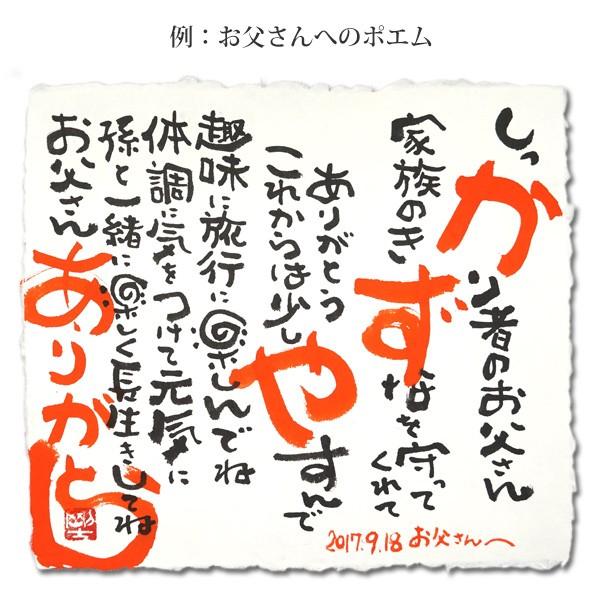 例：お父さんへのポエム
しっかり者のお父さん
家族のきずなを守って
くれて
ありがとう
これからは少し
やすんで
趣味に旅行に楽しんでね
体調に気をつけて元気に
孫と一緒に楽しく長生きしてね
お父さん
ありがとう
2017.9.18 お父さんへ